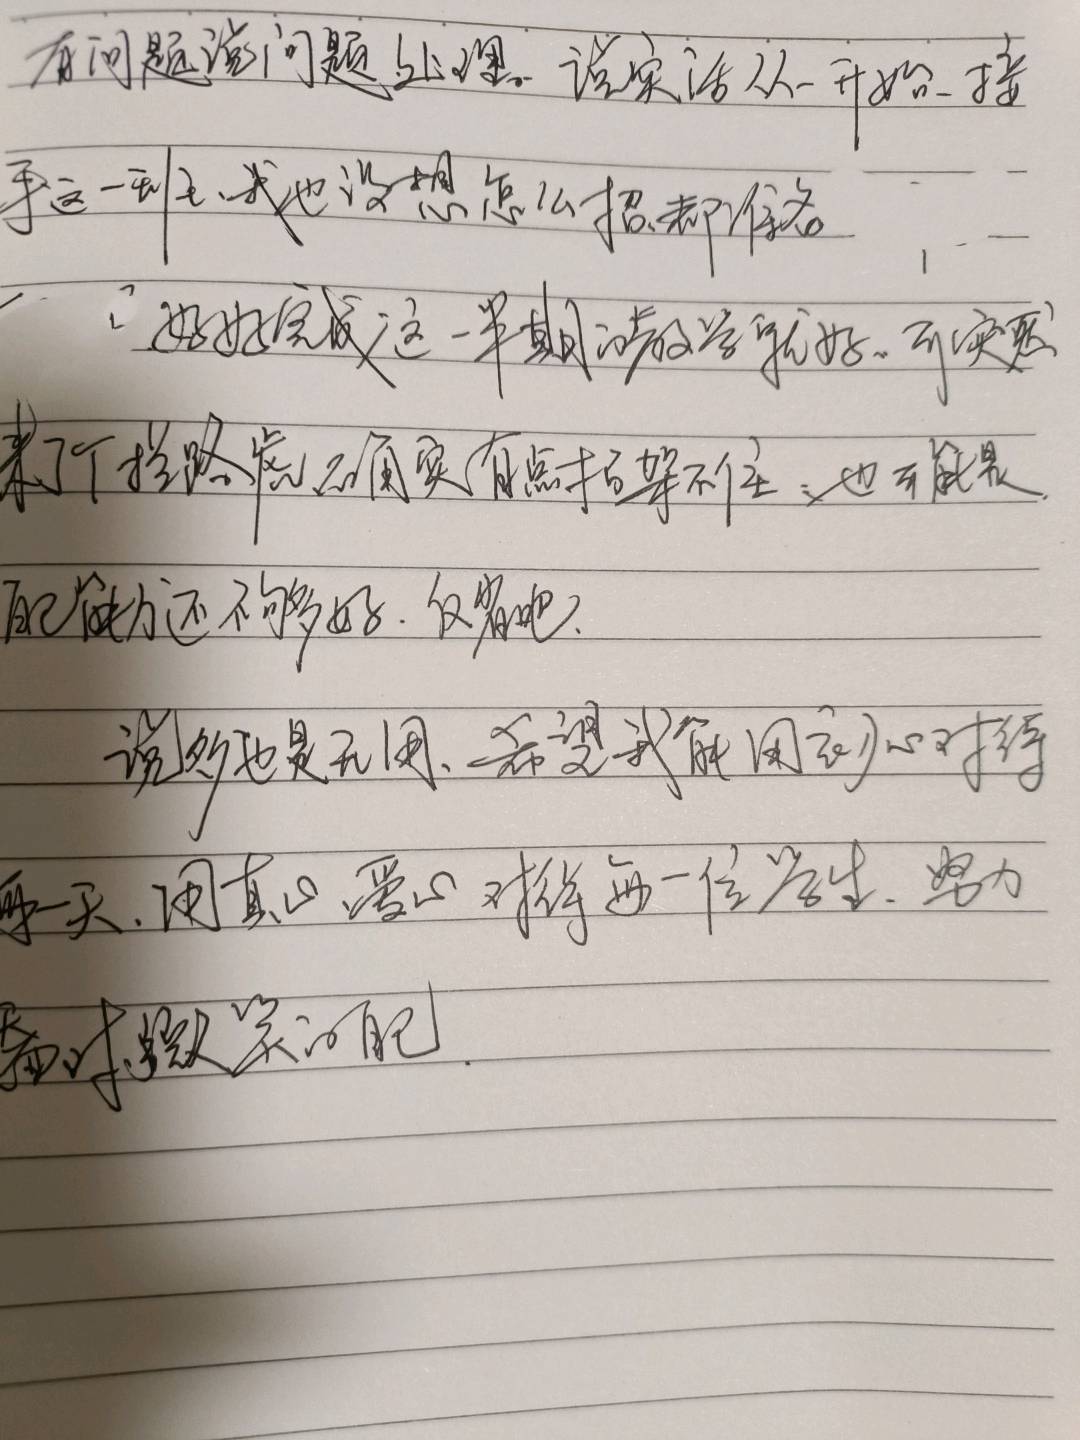 有问题说问题处理。说实话从一开始接
手这一到，我也没想怎么招
好好完成这一学期的教学就好。可突然
来了个拦路虎，确实有点招架不住，也可能是
自己能力还不够好。
说多也是无用、希望我能用初心对待
每一天、用真心、爱心对待每一位学生、努力
的自己